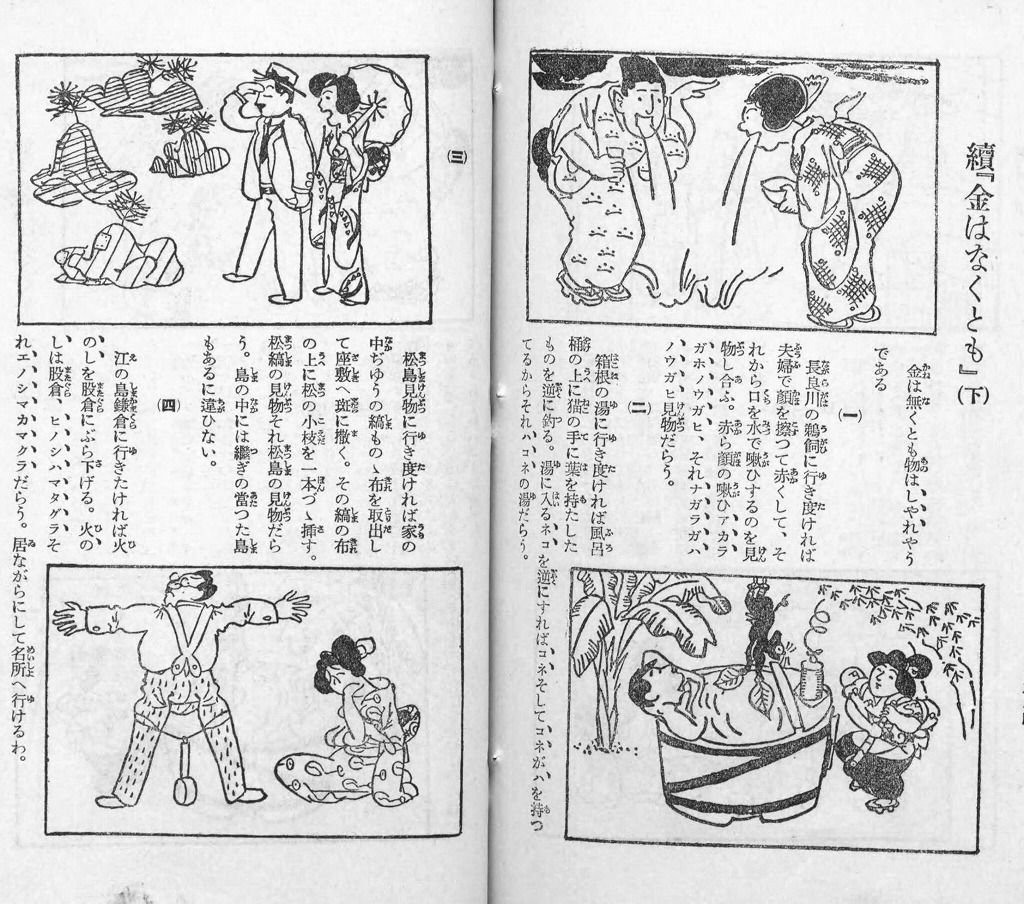 續『金はなくとも』(下)
金は無くとも物はしやれやう
である
(一)
長良川の鵜飼に行き度ければ
夫婦で顏を擦つて赤くして、そ
れから口を水で嗽ひするのを見
物し合ふ。赤ら顏の嗽ひアカラ
ガホノウガヒ、それナガラガハ
ノウガヒ見物だらう。
(二)
箱根の湯に行き度ければ風呂
桶の上に猫の手に葉を持たした
ものを逆に釣る。湯に入るネコを逆にすればコネそしてコネがハを持つ
てるからそれハコネの湯だらう。
(三)
松島見物に行き度ければ家の
中ぢゆうの縞ものゝ布を取出し
て座敷へ斑に撒く。その縞の布
の上に松の小枝を一本づゝ挿す。
松縞の見物それ松島の見物だら
う。島の中には繼ぎの當つた島
もあるに違ひない。
(四)
江の島鎌倉に行きたければ火
のしを股倉にぶら下げる。火の
しは股倉、ヒノシハマタグラそ
れエノシマカマクラだらう。居ながらにして名所へ行けるわ。